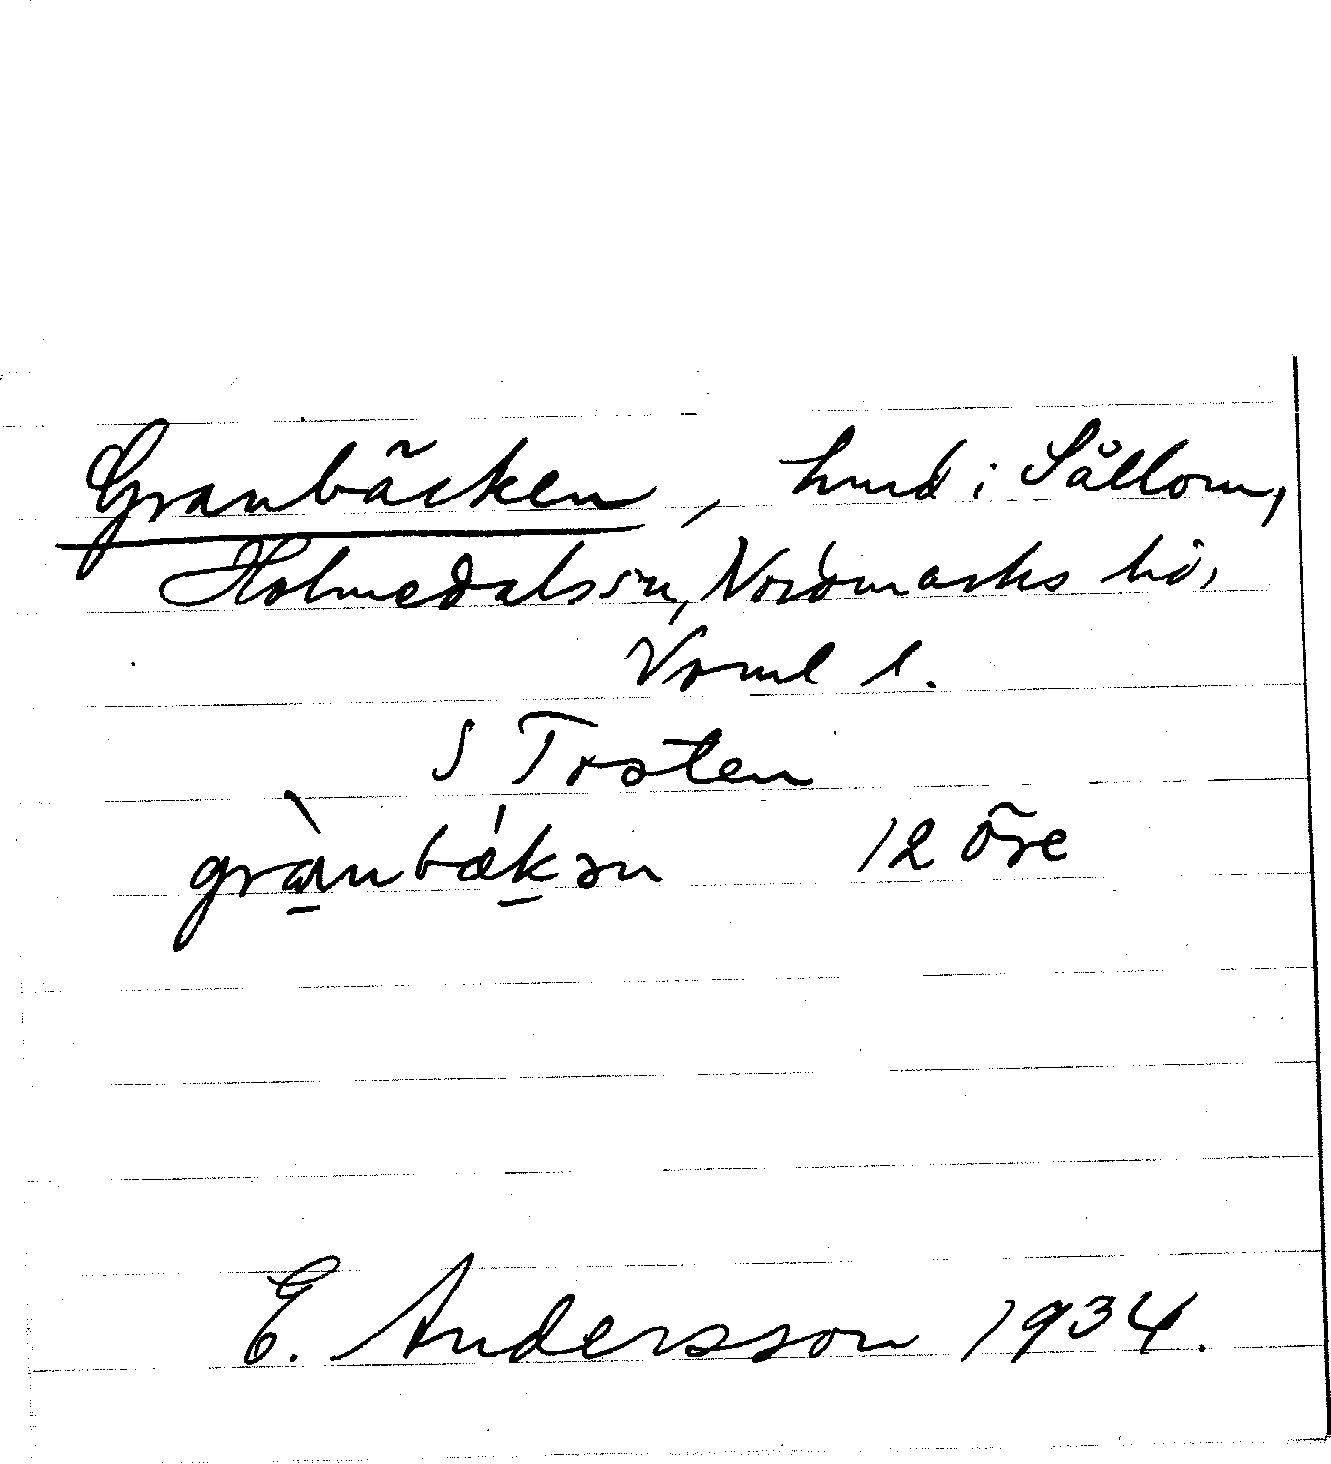 Granbäcken, hmd i Sällom,
Holmedals sn, Nordmarks hd,
Verml l.
S Torsten
grànbǽkən 12 öre
E. Andersson 1934.